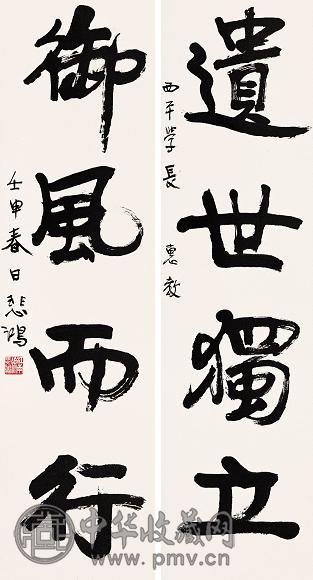 遺世獨立
西平学長 惠教
御風而行
壬申春日悲鴻
中华收藏网
www.pmv.cn